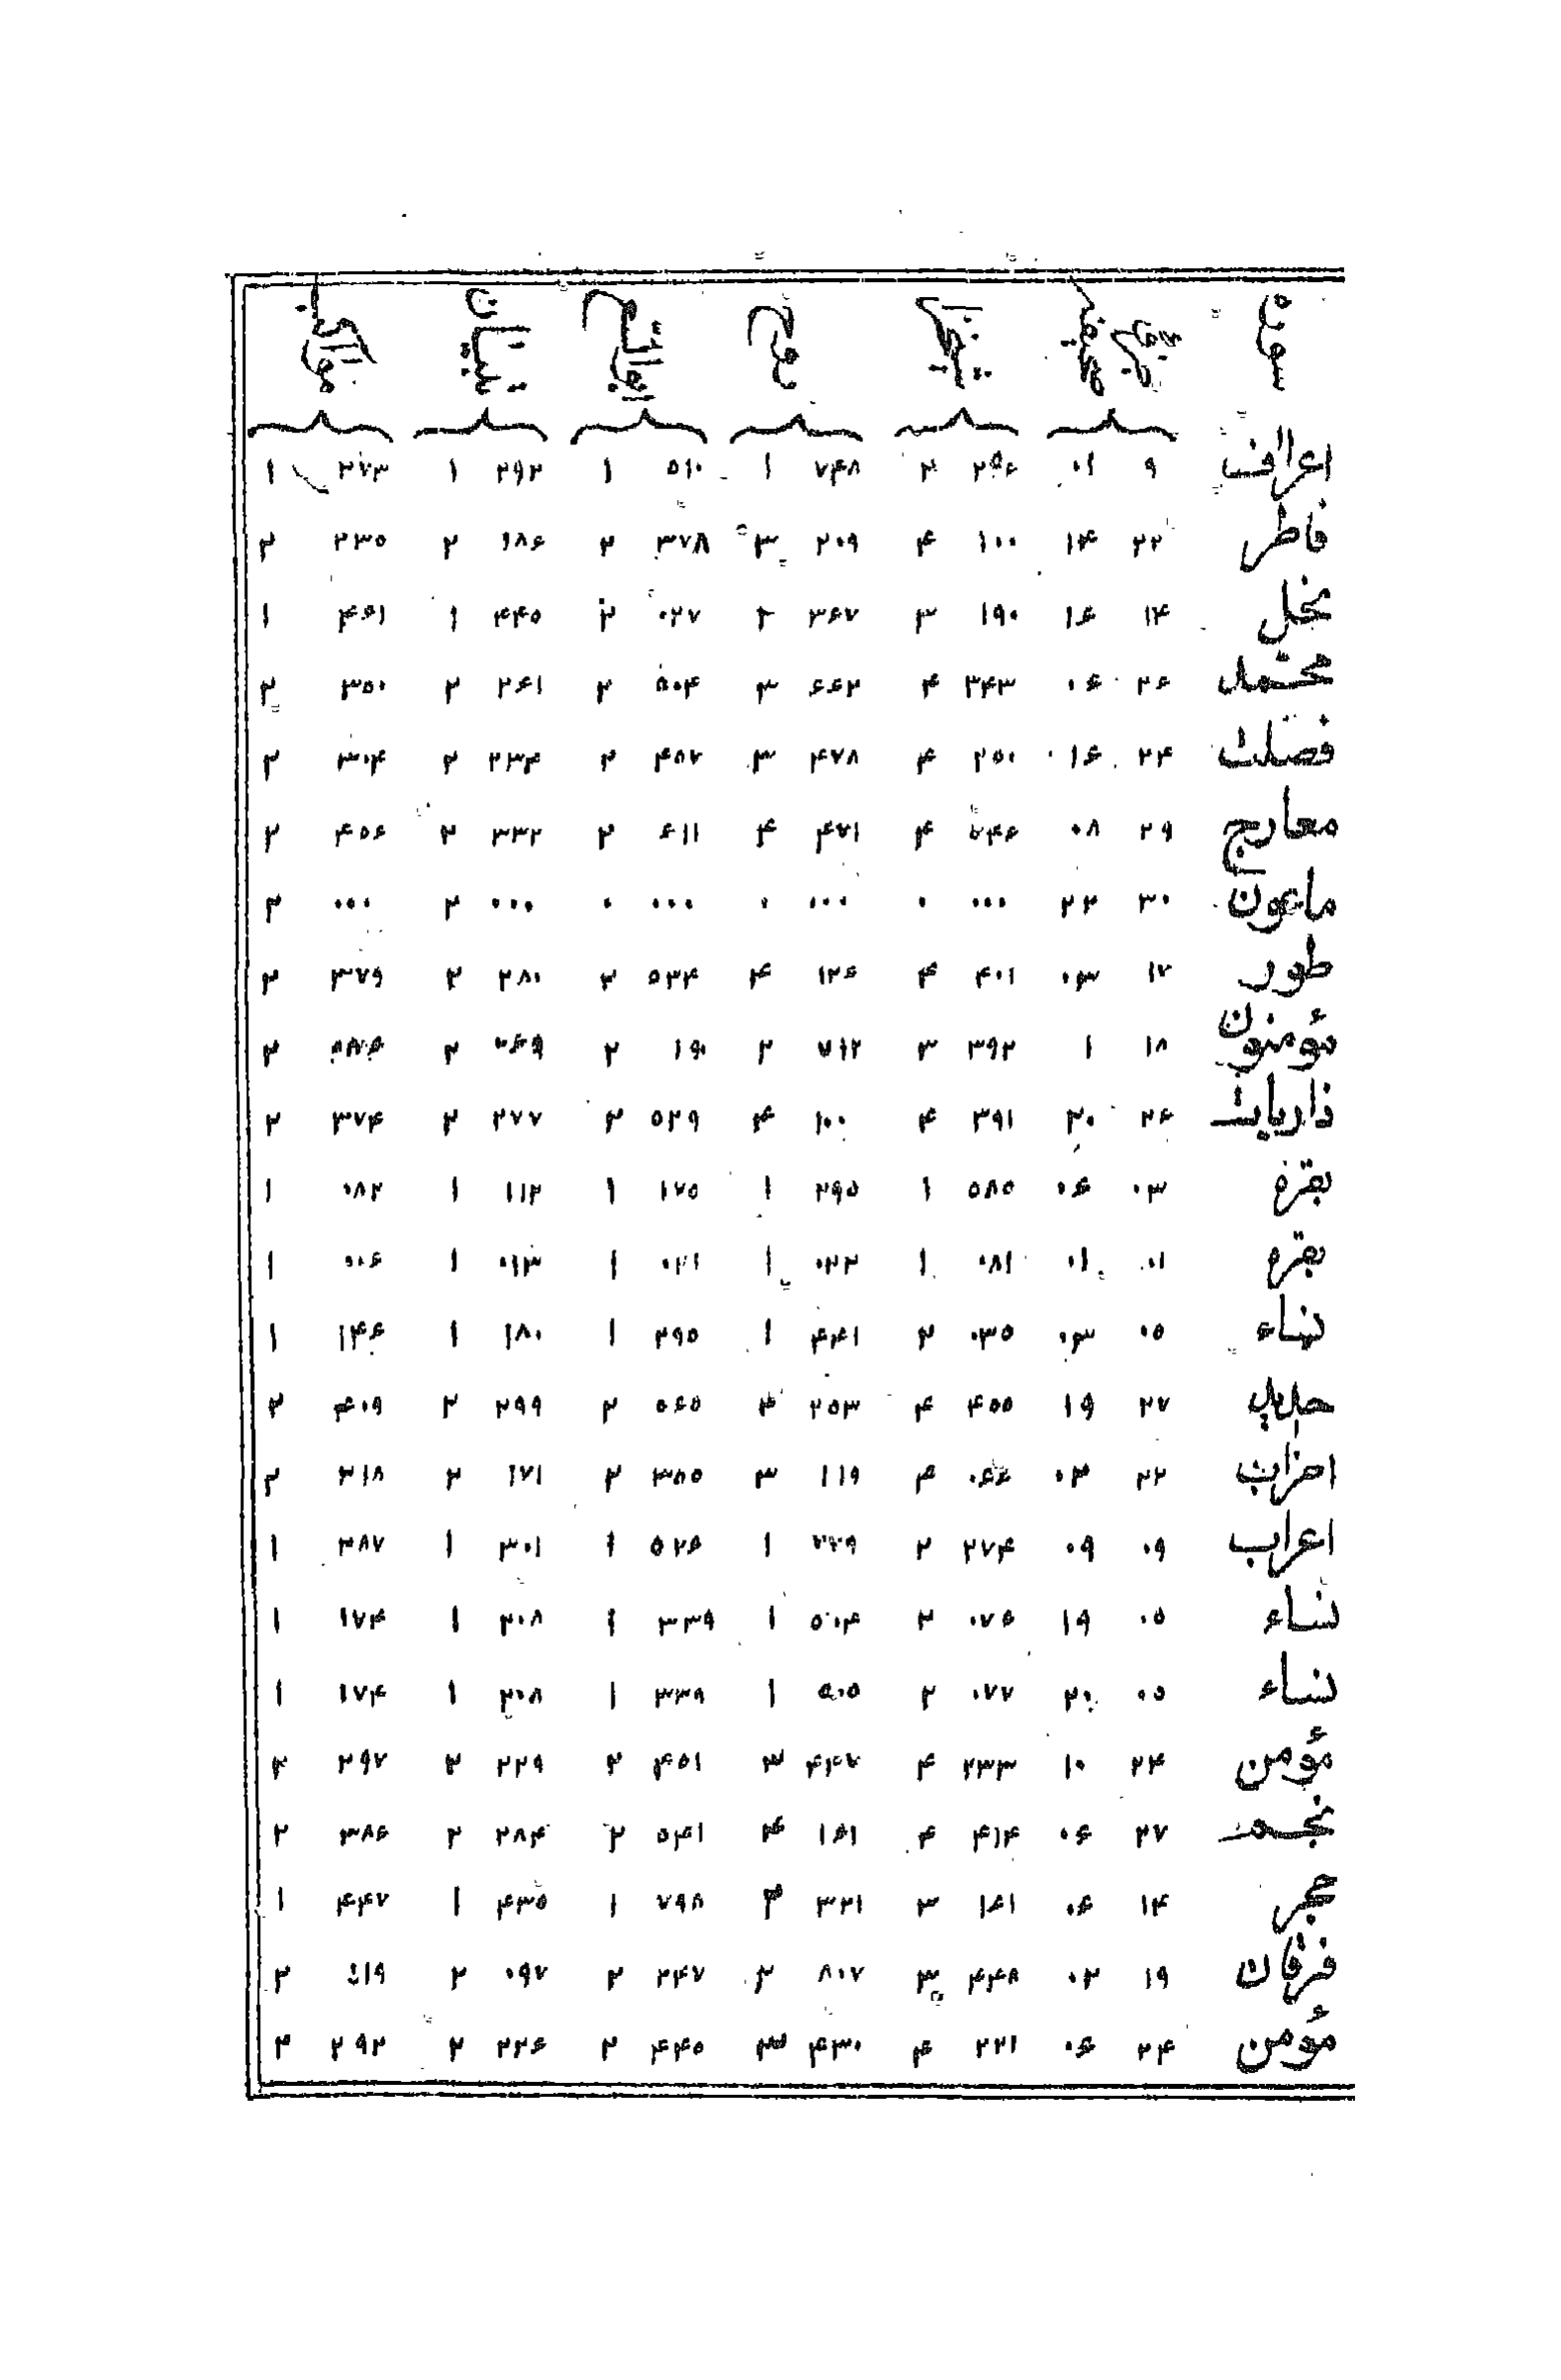 سوره
اعراف ۹ ۰۱ ۲۹۶ ۲ ۷۴۸ ۱ ۵۱۰ ۱ ۲۹۲ ۱ ۲۷۳ ۱
فاطر ۲۲ ۱۴ ۱۰۰ ۴ ۲۰۹ ۳ ۳۷۸ ۲ ۱۸۶ ۲ ۲۳۵ ۲
نحل ۱۴ ۱۶ ۱۹۰ ۳ ۳۶۷ ۲ ۰۲۷ ۲ ۴۴۵ ۱ ۴۶۱ ۱
محمد ۲۶ ۰۶ ۳۴۳ ۴ ۶۶۲ ۳ ۵۰۴ ۲ ۲۶۱ ۲ ۳۵۰ ۲
فصلت ۲۴ ۱۶ ۲۵۰ ۴ ۴۷۸ ۳ ۴۸۷ ۲ ۲۳۴ ۲ ۳۰۴ ۲
معارج ۲۹ ۰۸ ۵۴۶ ۴ ۴۷۱ ۴ ۶۱۱ ۲ ۳۳۲ ۲ ۴۵۶ ۲
ماعون ۳۰ ۲۲ ۰۰۰ ۰ ۰۰۰ ۰ ۰۰۰ ۰ ۰۰۰ ۲ ۰۰۰ ۲
طور ۱۷ ۰۳ ۴۰۱ ۴ ۱۲۶ ۴ ۵۳۴ ۲ ۲۸۰ ۲ ۳۷۹ ۲
مؤمنون ۱۸ ۱ ۳۹۲ ۳ ۷۱۲ ۲ ۱۹۰ ۲ ۲
ذاریات ۲۶ ۲۰ ۳۹۱ ۴ ۱۰۰ ۴ ۵۲۹ ۲ ۲۷۷ ۲ ۳۷۴ ۲
بقره ۰۳ ۰۶ ۵۸۵ ۱ ۲۹۵ ۱ ۱۷۵ ۱ ۱۱۲ ۱ ۰۸۲ ۱
بقره ۰۱ ۰۱ ۰۸۱ ۱ ۰۲۲ ۱ ۰۲۱ ۱ ۰۱۳ ۱ ۰۰۶ ۱
نساء ۰۵ ۰۳ ۰۳۵ ۲ ۴۴۱ ۱ ۲۹۵ ۱ ۱۸۰ ۱ ۱۴۶ ۱
حدید ۲۷ ۱۹ ۴۵۵ ۴ ۲۵۳ ۴ ۵۶۵ ۲ ۲۹۹ ۲ ۴۰۹ ۲
احزاب ۲۲ ۰۲ ۰۶۶ ۴ ۱۱۹ ۳ ۳۸۵ ۲ ۱۷۱ ۲ ۲۱۸ ۲
اعراب ۰۹ ۰۹ ۲۷۴ ۲ ۷۷۹ ۱ ۵۲۶ ۱ ۳۰۱ ۱ ۲۸۷ ۱
نساء ۰۵ ۱۹ ۰۷۶ ۲ ۵۰۴ ۱ ۳۳۹ ۱ ۲۰۸ ۱ ۱۷۴ ۱
نساء ۰۵ ۲۰ ۰۷۷ ۲ ۵۰۵ ۱ ۳۳۹ ۱ ۲۰۸ ۱ ۱۷۴ ۱
مؤمن ۲۴ ۱۰ ۲۳۳ ۴ ۴۴۷ ۳ ۴۵۱ ۲ ۲۲۹ ۲ ۲۹۷ ۲
نجم ۲۷ ۰۶ ۴۱۴ ۴ ۱۶۱ ۴ ۵۴۱ ۲ ۲۸۴ ۲ ۳۸۶ ۲
حجر ۱۴ ۰۶ ۱۶۱ ۳ ۳۲۱ ۲ ۷۹۸ ۱ ۴۳۵ ۱ ۴۴۷ ۱
فرقان ۱۹ ۰۲ ۴۴۸ ۳ ۸۰۷ ۲ ۲۴۷ ۲ ۰۹۷ ۲ ۱۱۹ ۲
مؤمن ۲۴ ۰۶ ۲۲۱ ۴ ۴۳۰ ۳ ۴۴۵ ۲ ۲۲۶ ۲ ۲۹۲ ۲